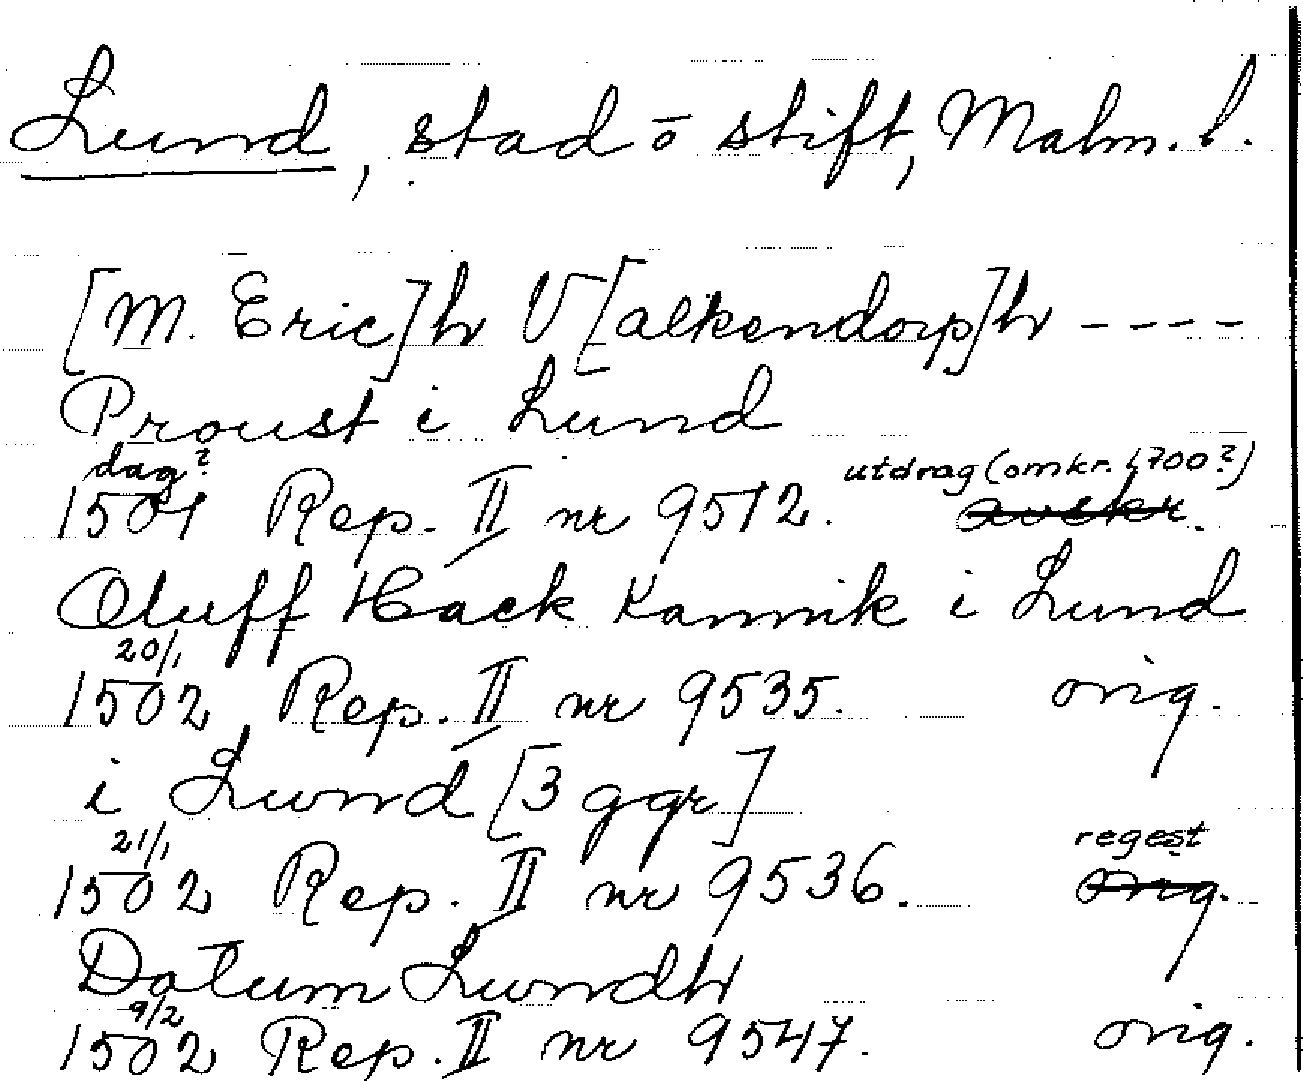 Lund, stad o stift, Malm. l.
[M. Eric]h V[alkendorp]h ----
Proust i Lund
dag? utdrag (omkr. 1700?)
1501 Rep. II nr 9512. avskr.
Oluff Hack Kannik i Lund
20/1
1502 Rep. II nr 9535. orig.
i Lund [3 ggr]
21/1 regest
1502 Rep. II nr 9536. orig.
Datum Lundh
9/2
1502 Rep. II nr 9547. orig.